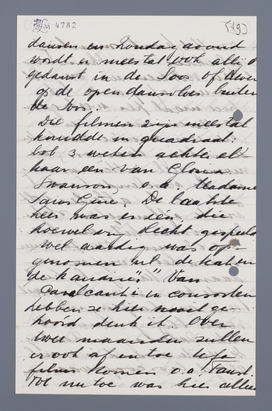 4782
dansen en Zondagavond
wordt er meestal ook altijd
gedanst in de Soos of
op de open dansvloer buiten
de Soos.
Die filmen zijn meestal
in quadraat:
3 weken achter el
kaar een van Gloria
Swanson, o.a. Madame
Sans Gène. De laatste
keer was er een die
hoewel slecht gespeeld
wel aardig was op-
genomen nl. de kat en
de kanarie". Van
Cavalcanti en consorten
hebben ze hier nooit ge-
hoord denk ik. Over
twee maanden zullen
er ook af en toe Ufa
films komen o.a. Faust.
Tot nu toe was hier alles